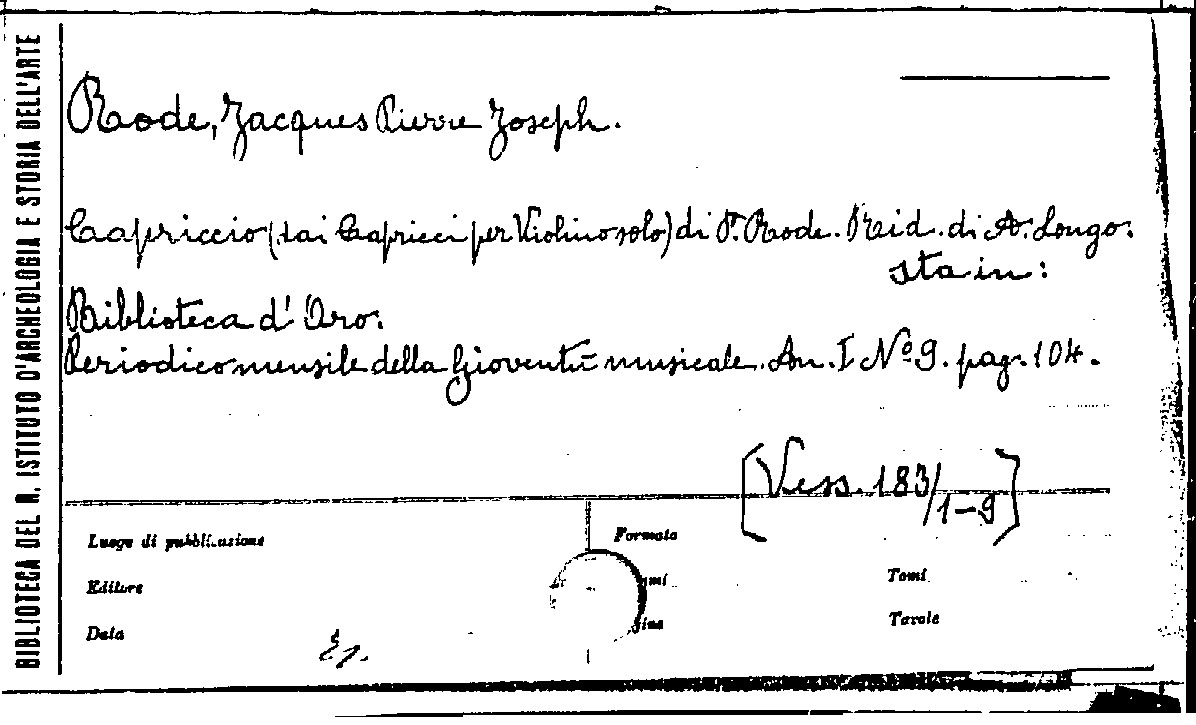 BIBLIOTECA DEL R. ISTITUTO D'ARCHEOLOGIA E STORIA DELL'ARTE
Rode, Jacques Pierre Joseph.
Capriccio (dai Capricci per Violino solo) di P. Rode. Rid. di A. Longo.
sta in:
Biblioteca d'Oro.
Periodico mensile della Gioventù musicale. An. I Nº 9. pag. 104.
[Vess. 183/1-9]
Luogo di pubblicazione
Formato
Editore
Tomi
Data
Tavole